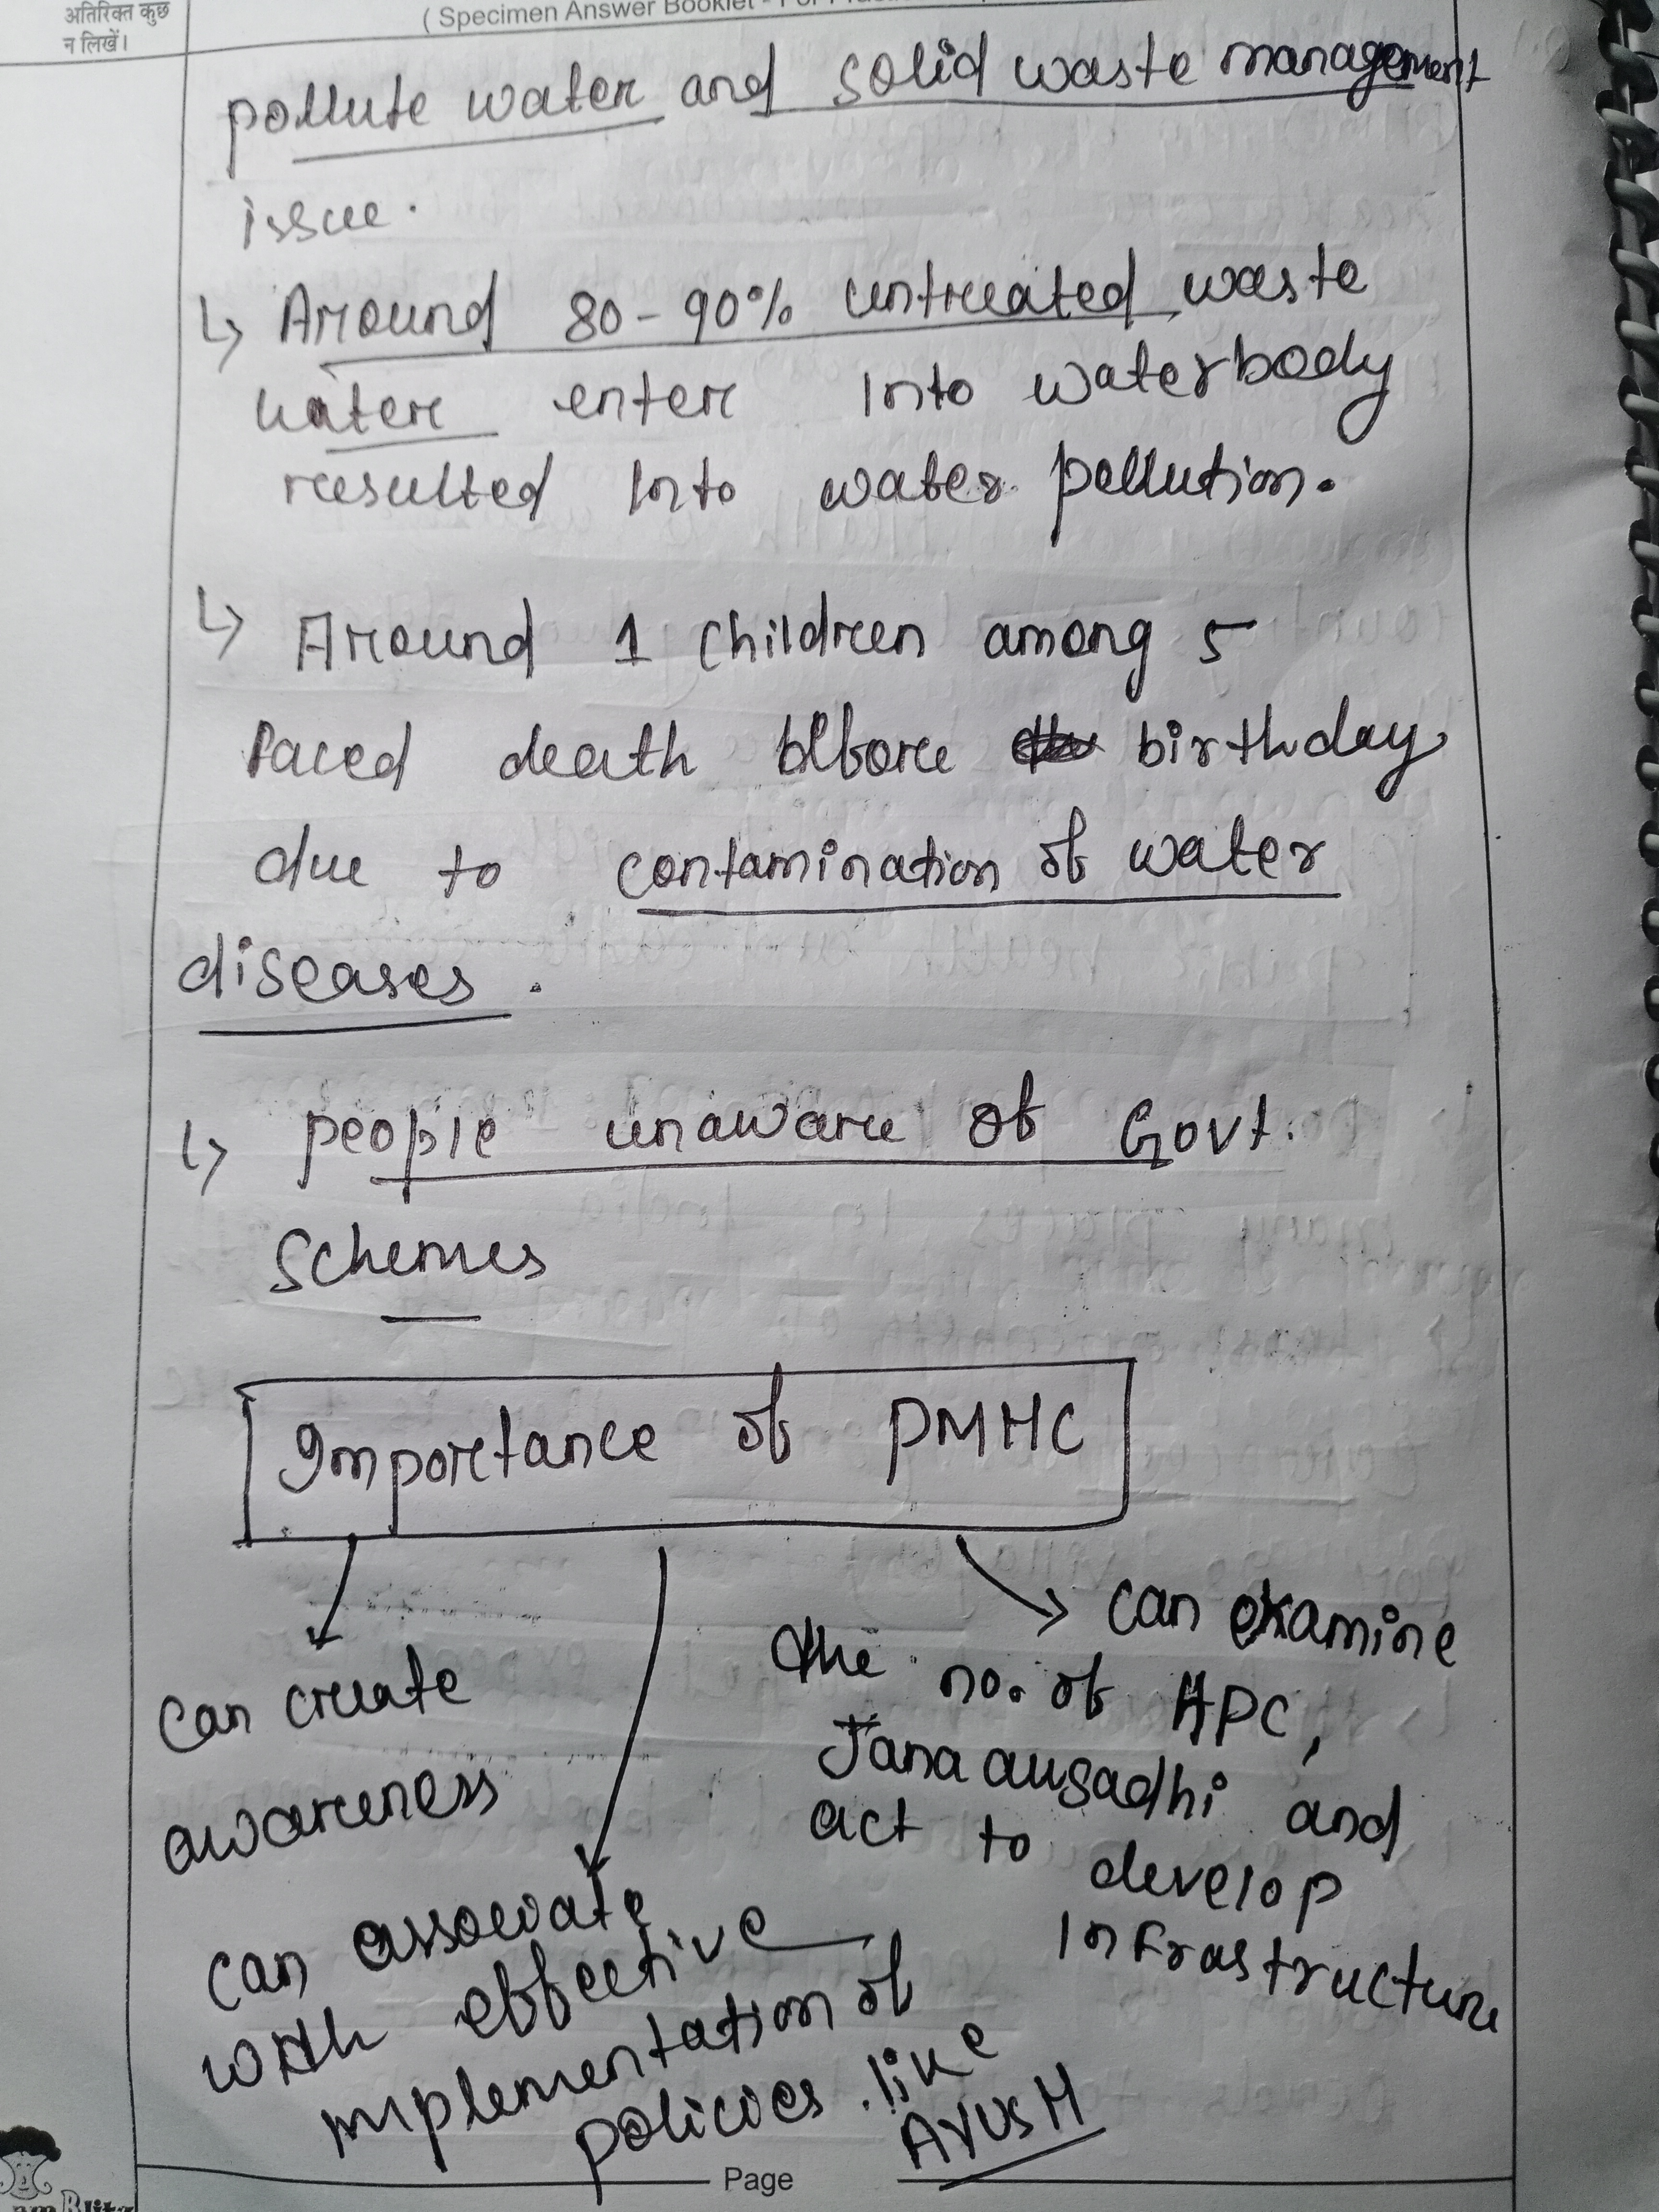 अतिरिक्त कुछ
न लिखें।
( Specimen Answer Booklet - For
pollute water and solid waste management
issue.
↳ Around 80-90% untreated waste
water enter Into waterbody
resulted Into water pollution.
↳ Around 1 children among 5
faced death before birthday
due to contamination of water
diseases.
↳ people unaware of Govt.
Schemes
Importance of PMHC
can create
awareness
can associate
with effective
implementation of
policies like
AYUSH
can examine
the no. of HPC,
Jana ausadhi and
act to develop
Infrastructure
Page